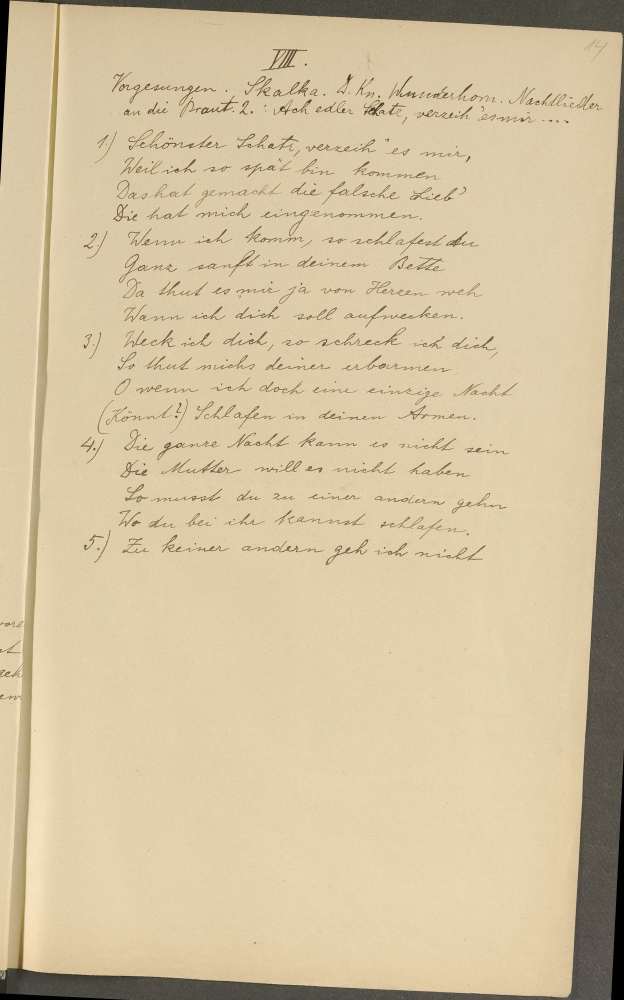 14
VIII.
Vorgesungen. Skalka. D. Kn. Wunderhorn. Nachtlieder
an die Braut. 2.: Ach edler Schatz, verzeih' es mir ....
1.) Schönster Schatz, verzeih' es mir,
Weil ich so spät bin kommen
Das hat gemacht die falsche Lieb'
Die hat mich eingenommen.
2.) Wenn ich komm, so schlafest du
Ganz sanft in deinem Bette
Da thut es mir ja von Herzen weh
Wann ich dich soll aufwecken.
3.) Weck ich dich, so schreck ich dich,
So thut michs deiner erbarmen
O wenn ich doch eine einzige Nacht
(Könnt?) Schlafen in deinen Armen.
4.) Die ganze Nacht kann es nicht sein
Die Mutter will es nicht haben
So musst du zu einer andern gehn
Wo du bei ihr kannst schlafen.
5.) Zu keiner andern geh ich nicht